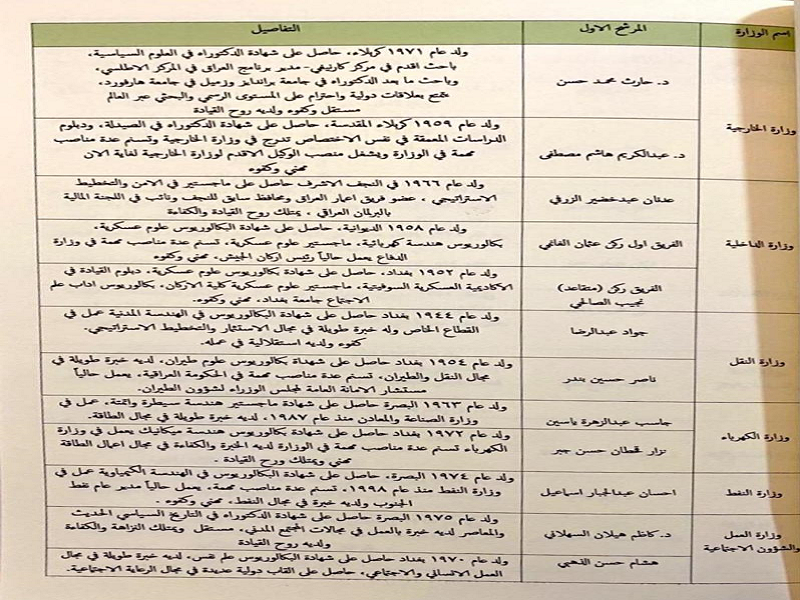 اسم الوزارة
المرشح الاول
التفاصيل
وزارة الخارجية
د. حارث محمد حسن
ولد عام ١٩٧١ كربلاء، حاصل على شهادة الدكتوراه في العلوم السياسية،
باحث اقدم في مركز كارنيغي- مدير برنامج العراق في المركز الاطلسي.
وباحث ما بعد الدكتوراه في جامعة براندايز وزميل في جامعة هارفورد.
يتمتع بعلاقات دولية واحترام على المستوى الرسمي والبحثي عبر العالم
مستقل وكفوء ولديه روح القيادة
د. عبدالكريم هاشم مصطفى
ولد عام ١٩٥٩ كربلاء المقدسة، حاصل على شهادة الدكتوراه في الصيدلة، ودبلوم
الدراسات المعمقة في نفس الاختصاص تدرج في وزارة الخارجية وتسنم عدة مناصب
مهمة في الوزارة ويشغل منصب الوكيل الاقدم لوزارة الخارجية لغاية الان
مهني وكفوء
وزارة الداخلية
عدنان عبدخضير الزرفي
ولد عام ١٩٦٦ في النجف الاشرف حاصل على ماجستير في الامن والتخطيط
الاستراتيجي ، عضو فريق اعمار العراق ومحافظ سابق للنجف ونائب في اللجنة المالية
بالبرلمان العراقي ، يمتلك روح القيادة والكفاءة
الفريق اول ركن عثمان الغانمي
ولد عام ١٩٥٨ الديوانية، حاصل على شهادة البكالوريوس علوم عسكرية،
بكالوريوس هندسة كهربائية، ماجستير علوم عسكرية، تسنم عدة مناصب مهمة في وزارة
الدفاع يعمل حالياً رئيس اركان الجيش. مهني وكفوء
الفريق ركن (متقاعد)
نجيب الصالحي
ولد عام ١٩٥٢ بغداد، حاصل على شهادة بكالوريوس علوم عسكرية، دبلوم القيادة في
الاكاديمية العسكرية السوفيتية، ماجستير علوم عسكرية كلية الاركان، بكالوريوس اداب علم
الاجتماع جامعة بغداد، مهني وكفوء.
وزارة النقل
جواد عبدالرضا
ولد عام ١٩٤٤ بغداد حاصل على شهادة البكالوريوس في الهندسة المدنية عمل في
القطاع الخاص وله خبرة طويلة في مجال الاستثمار والتخطيط الاستراتيجي.
كفوء ولديه استقلالية في عمله.
ناصر حسين بندر
ولد عام ١٩٥٤ بغداد حاصل على شهداة بكالوريوس علوم طيران، لديه خبرة طويلة في
مجال النقل والطيران، تسنم عدة مناصب مهمة في الحكومة العراقية، يعمل حالياً
مستشار الامانة العامة لمجلس الوزراء لشؤون الطيران.
وزارة الكهرباء
جاسب عبدالزهرة ياسين
ولد عام ١٩٦٣ البصرة حاصل على شهادة ماجستير هندسة سيطرة واتمتة، عمل في
وزارة الصناعة والمعادن منذ عام ١٩٨٧، لديه خبرة طويلة في مجال الطاقة.
نزار قحطان حسن جبر
ولد عام ١٩٧٢ بغداد حاصل على شهادة بكالوريوس هندسة ميكانيك يعمل في وزارة
الكهرباء تسنم عدة مناصب مهمة في الوزارة لديه الخبرة والكفاءة في مجال اعمال الطاقة
مهني ويمتلك ورح القيادة .
وزارة النفط
احسان عبدالجبار اسماعيل
ولد عام ١٩٧٤ البصرة، حاصل على شهادة البكالوريوس في الهندسة الكيمياوية عمل في
وزارة النفط منذ عام ١٩٩٨، تسنم عدة مناصب مهمة، يعمل حالياً مدير عام نفط
الجنوب ولديه خبرة في مجال النفط، مهني وكفوء .
وزارة العمل
والشؤون الاجتماعية
د. كاظم هيلان السهلاني
ولد عام ١٩٧٥ البصرة حاصل على شهادة الدكتوراه في التاريخ السياسي الحديث
والمعاصر لديه خبرة بالعمل في مجالات المجتمع المدني، مستقل ويمتلك النزاهة والكفاءة
ولديه روح القيادة
هشام حسن الذهبي
ولد عام ١٩٧٠ بغداد حاصل على شهادة البكالوريوس علم نفس، لديه خبرة طويلة في مجال
العمل الانساني والاجتماعي، حاصل على القاب دولية عديدة في مجال الرعاية الاجتماعية.